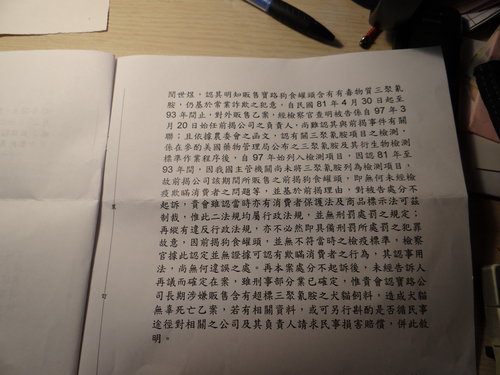 閆世煜，認其明知販售寶路狗食罐頭含有有毒物質三聚氰
胺，仍基於常業詐欺之犯意，自民國 81 年 4 月 30 日起至
93 年間止，對外販售乙案，經檢察官查明被告係自 97 年 3
月 20 日始任前揭公司之負責人，尚難認其與前揭事件有關
聯；且依據農委會之函文，認有關三聚氰胺項目之檢測，
係在參酌美國藥物管理局公布之三聚氰胺及其衍生物檢測
標準作業程序後，自 97 年始列入檢測項目，因認 81 年至
93 年間，因我國主管機關尚未將三聚氰胺列為檢測項目，
故前揭公司該期間所販售之前揭狗食罐頭，即無何未經檢
疫欺瞞消費者之問題等，並基於前揭理由，對被告處分不
起訴，貴會雖認當時亦有消費者保護法及商品標示法可茲
制裁，惟此二法規均屬行政法規，並無刑罰處罰之規定；
再縱有違反行政法規，亦不必然即具備刑罰所處罰之犯罪
故意，因前揭狗食罐頭，並無不符當時之檢疫標準，檢察
官據此認定並無證據可認有欺瞞消費者之行為，其認事用
法，尚無何違誤之處。再本案處分不起訴後，未經告訴人
再議而確定在案，雖刑事部分業已確定，惟貴會認寶路公
司長期涉嫌販售含有超標三聚氰胺之犬貓飼料，造成犬貓
無辜死亡乙案，若有相關資料，或可另行斟酌是否循民事
途徑對相關之公司及其負責人請求民事損害賠償，併此敘
明。